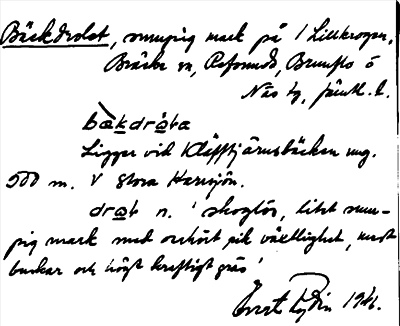 Bäckdrolet, sumpig mark på 1 Lillkrogen,
Bräcke sn, Refsunds, Brunflo o
Näs tg, Jämtl. l.
bækdróta
Ligger vid Kläfftjärnsbäcken ung.
500 m. V Stora Harrsjön.
drat n. ' skoglös, litet sum-
pig mark med oerhört rik växtlighet, mest
buskar och högt kraftigt gräs '
1941.